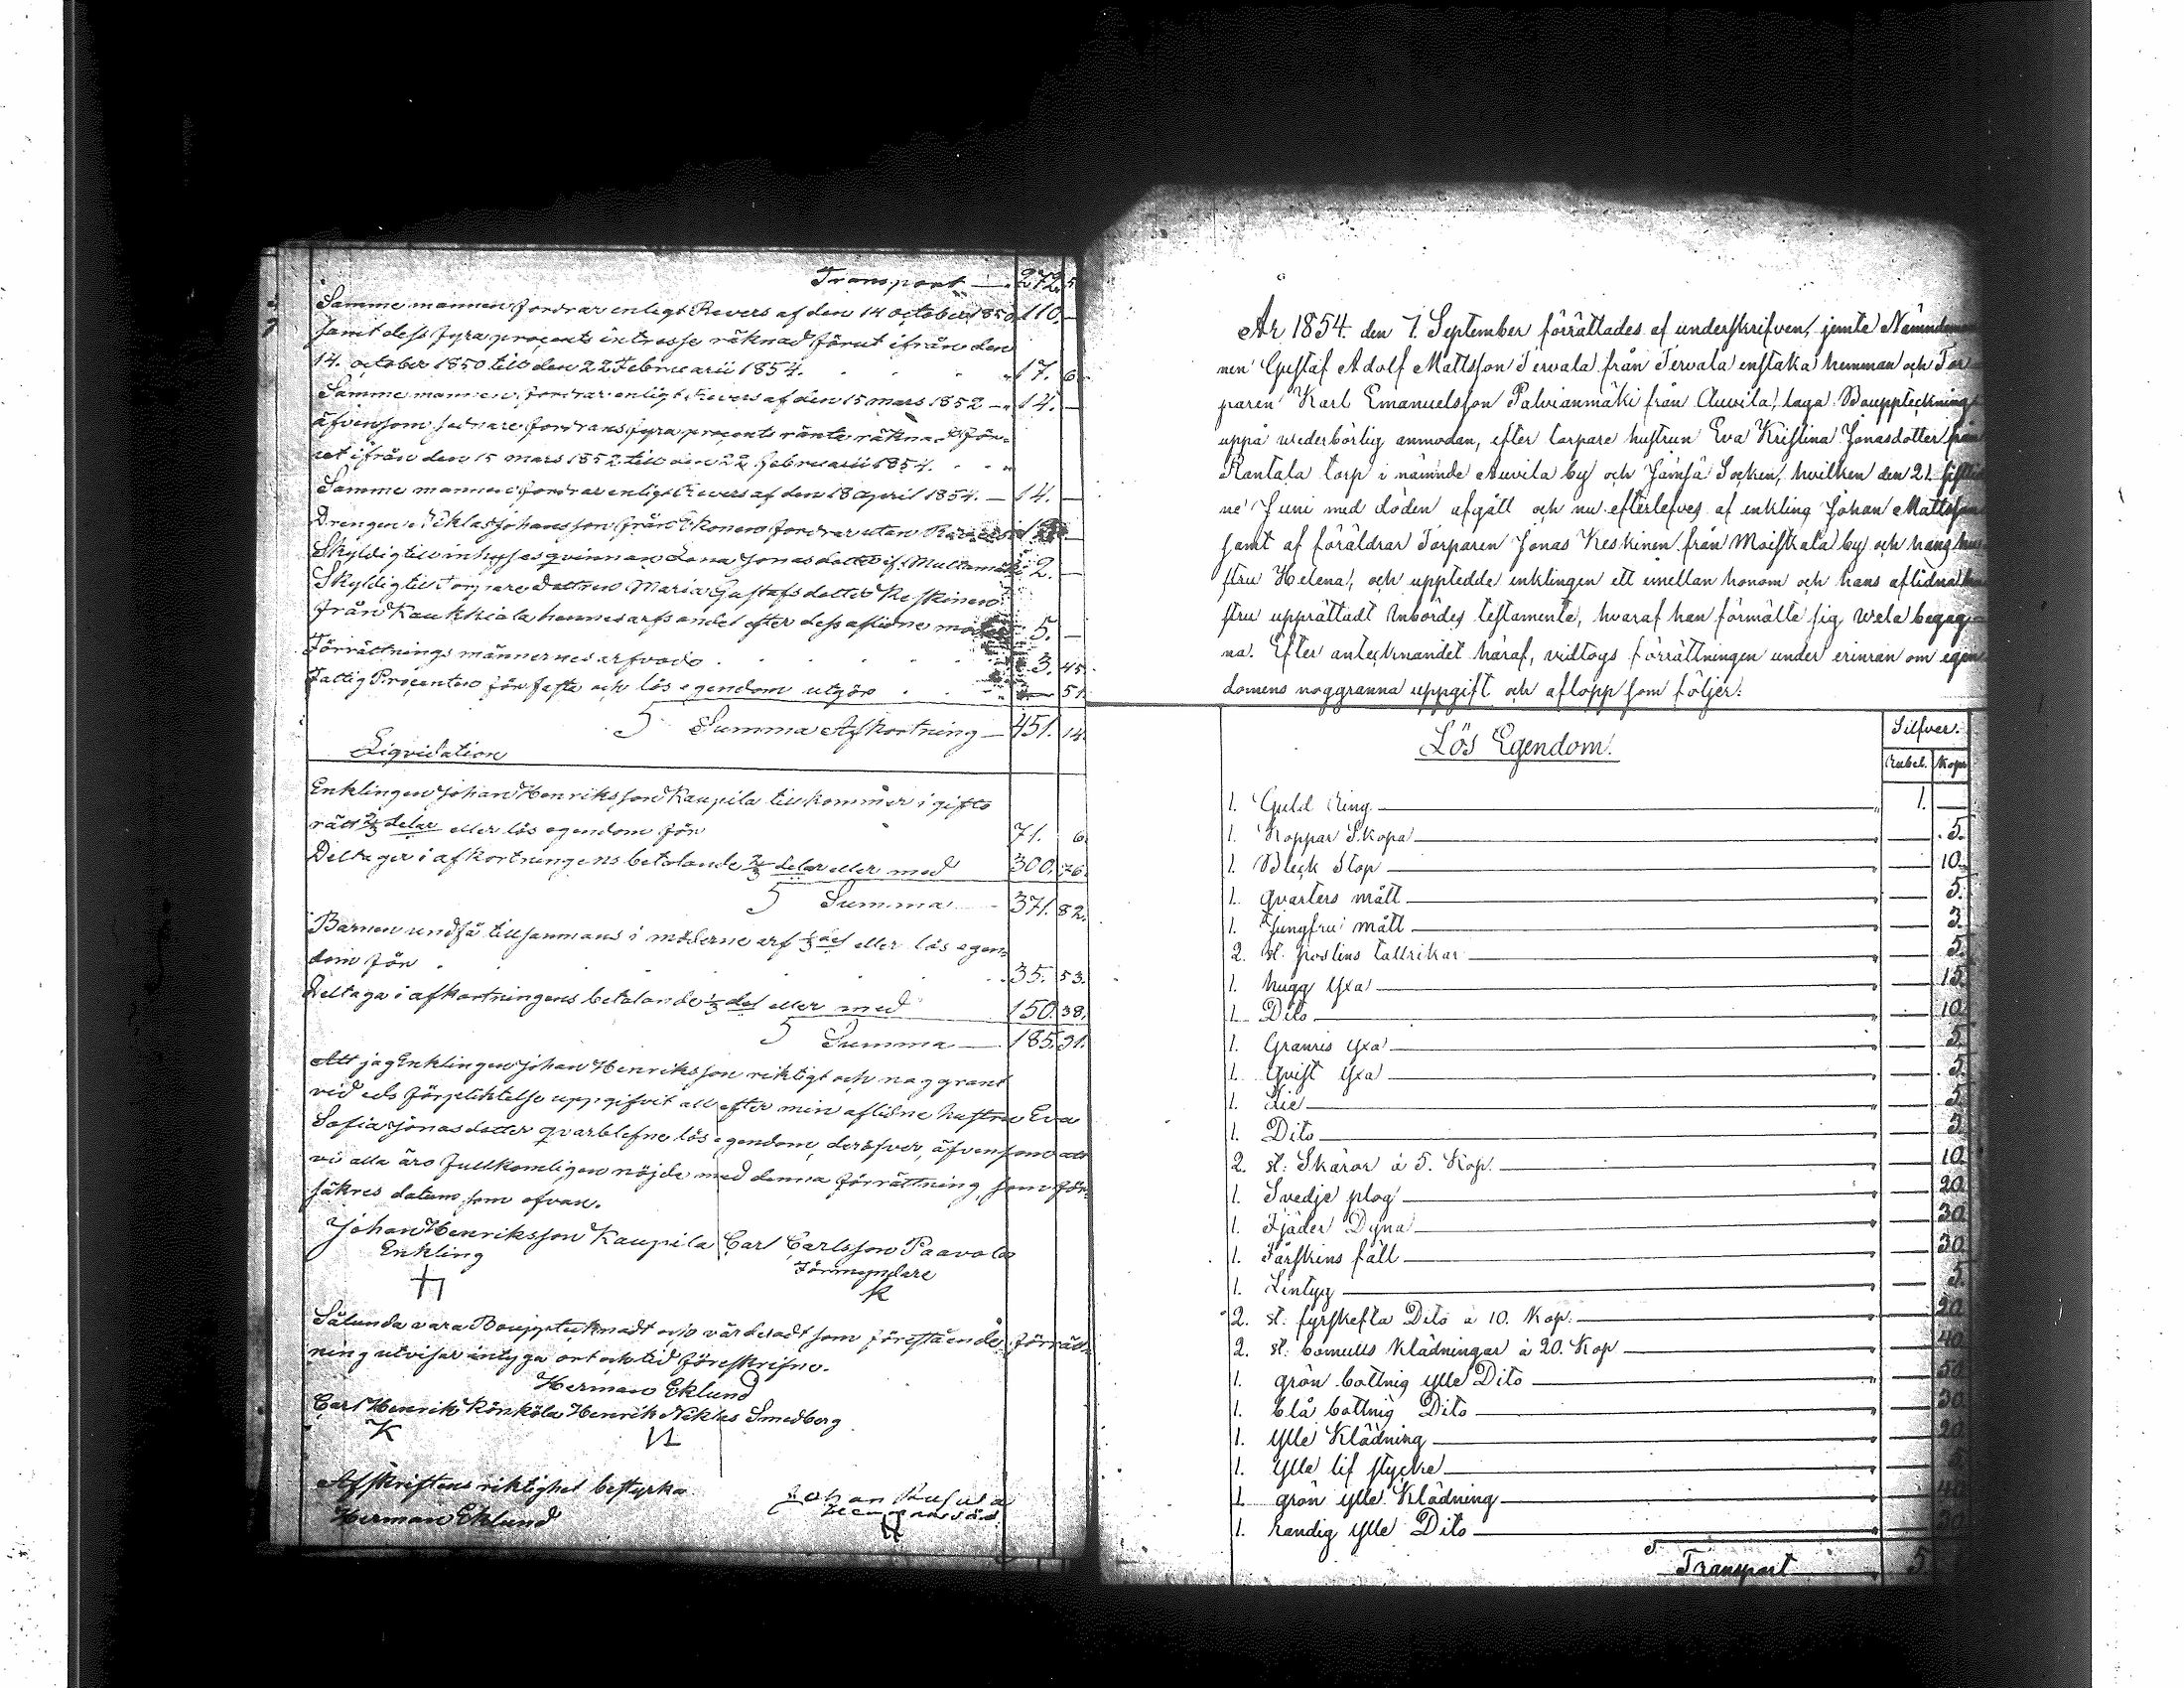 Transport — 272. 5
Samme mannen fordrar enligt Revers af den 14 october 1850 110. —
Jämt dess fyra procents intresse räknad förut ifrån den
14. october 1850 till den 22 Februarii 1854. 17. 6
Samme mannen fordrar enligt Revers af den 15 mars 1852 — 14. —
äfvensom sednare fordrans fyra procents ränta räknad för-
ut ifrån den 15 mars 1852 till den 22 februarii 1854.
Samme mannen fordrar enligt Revers af den 18 april 1854. — 14. —
Drengen Niklas Johansson från Ekonen fordrar utan
Skyldig till inhyses qvinnan Lena Jonasdotter if. Multamäki 2. —
Skyldig till Torpare Dottren Maria Gustafsdotter Keskinen
från Kaukkiala hennes arfs andel efter dess aflidne moder 5. —
Förrättnings männernes arfvode 3. 45.
Fattig Procenten för fasta och lös egendom utgör — 51
Summa Afkortning — 451. 14.
Liqvidation
Enklingen Johan Henriksson Kaupila tillkommer i gifto
rätt 2/3 delar eller lös egendom för 71. 6.
Deltager i afkortningens betalande 2/3 delar eller med 300. 76.
Summa 371. 82.
Barnen undfå tillsammans i möderne arf 1/3 del eller lös egen-
dom för 35. 53.
Deltaga i afkortningens betalande 1/3 del eller med 150. 38.
Summa — 185. 91.
Att jag Enklingen Johan Henriksson riktigt och noggrant
vid eds förpliktelse uppgifvit all efter min aflidne hustru Eva
Sofia Jonasdotter qvarblefne lös egendom, deröfver, äfvensom att
vi alla äro fullkomligen nöjde med denna förrättning, som för-
säkres datum som ofvan.
Johan Henriksson Kaupila Carl Carlsson Paavola
Enkling Förmyndare
K
Sålunda vara Bouppteknadt och värderadt som förestående förrätt-
ning utvisar intyga ort och tid föreskrifne.
Herman Eklund
Carl Henrik Könköla Henrik Niklas Smedberg
Afskriftens riktighet bestyrka
Herman Eklund Johan
År 1854. den 7. September förrättades af underskrifven, jemte Nämndeman
nen Gustaf Adolf Mattsson Tervala från Tervala enstaka hemman och Tor-
paren Karl Emanuelsson Palvianmäki från Auvila, laga Bouppteckning
uppå wederbörlig anmodan, efter torpare hustrun Eva Kristina Jonasdotter från
Rantala torp i nämnde Auvila by och Jämsä Socken, hvilken den 21. sistlid
ne Juni med döden afgått och nu efterlefves af enkling Johan Mattsson
samt af föräldrar Torparen Jonas Keskinen från Moiskala by och hans hu-
stru Helena, och upptedde enklingen ett emellan honom och hans aflidna hu
stru upprättadt Inbördes testamente, hvaraf han förmälte sig wela begag-
na. Efter antecknandet häraf, vidtogs förrättningen under erinran om egen
domens noggranna uppgift och aflopp som följer:
Lös Egendom. Silfver.
Rubel. Kop
1. Guld Ring 1. —
1. Koppar Skopa — 5.
1. Bleck Stop — 10.
1. qvarters mått — 5.
1. Jungfru mått — 3.
2. st. poslins tallrikar — 5.
1. hugg yxa — 15.
1. Dito — 10
1. Granris yxa — 5.
1. Qvist yxa — 5.
1. Lie — 5.
1. Dito — 3.
2. st: Skäror á 5. Kop. — 10
1. Svedje plog — 20
1. Fjäder Dyna — 30
1. Fårskins fäll — 30
1. Lintyg — 5.
2. st. fyrskefta Dito á 10. Kop. — 20
2. st. bomulls Klädningar á 20. Kop — 40
1. grön bottnig ylle Dito — 50
1. blå bottnig Dito — 30
1. ylle Klädning — 20
1. ylle lif stycke — 5
1. grön ylle Klädning — 40
1. randig ylle Dito — 30
Transport 5.